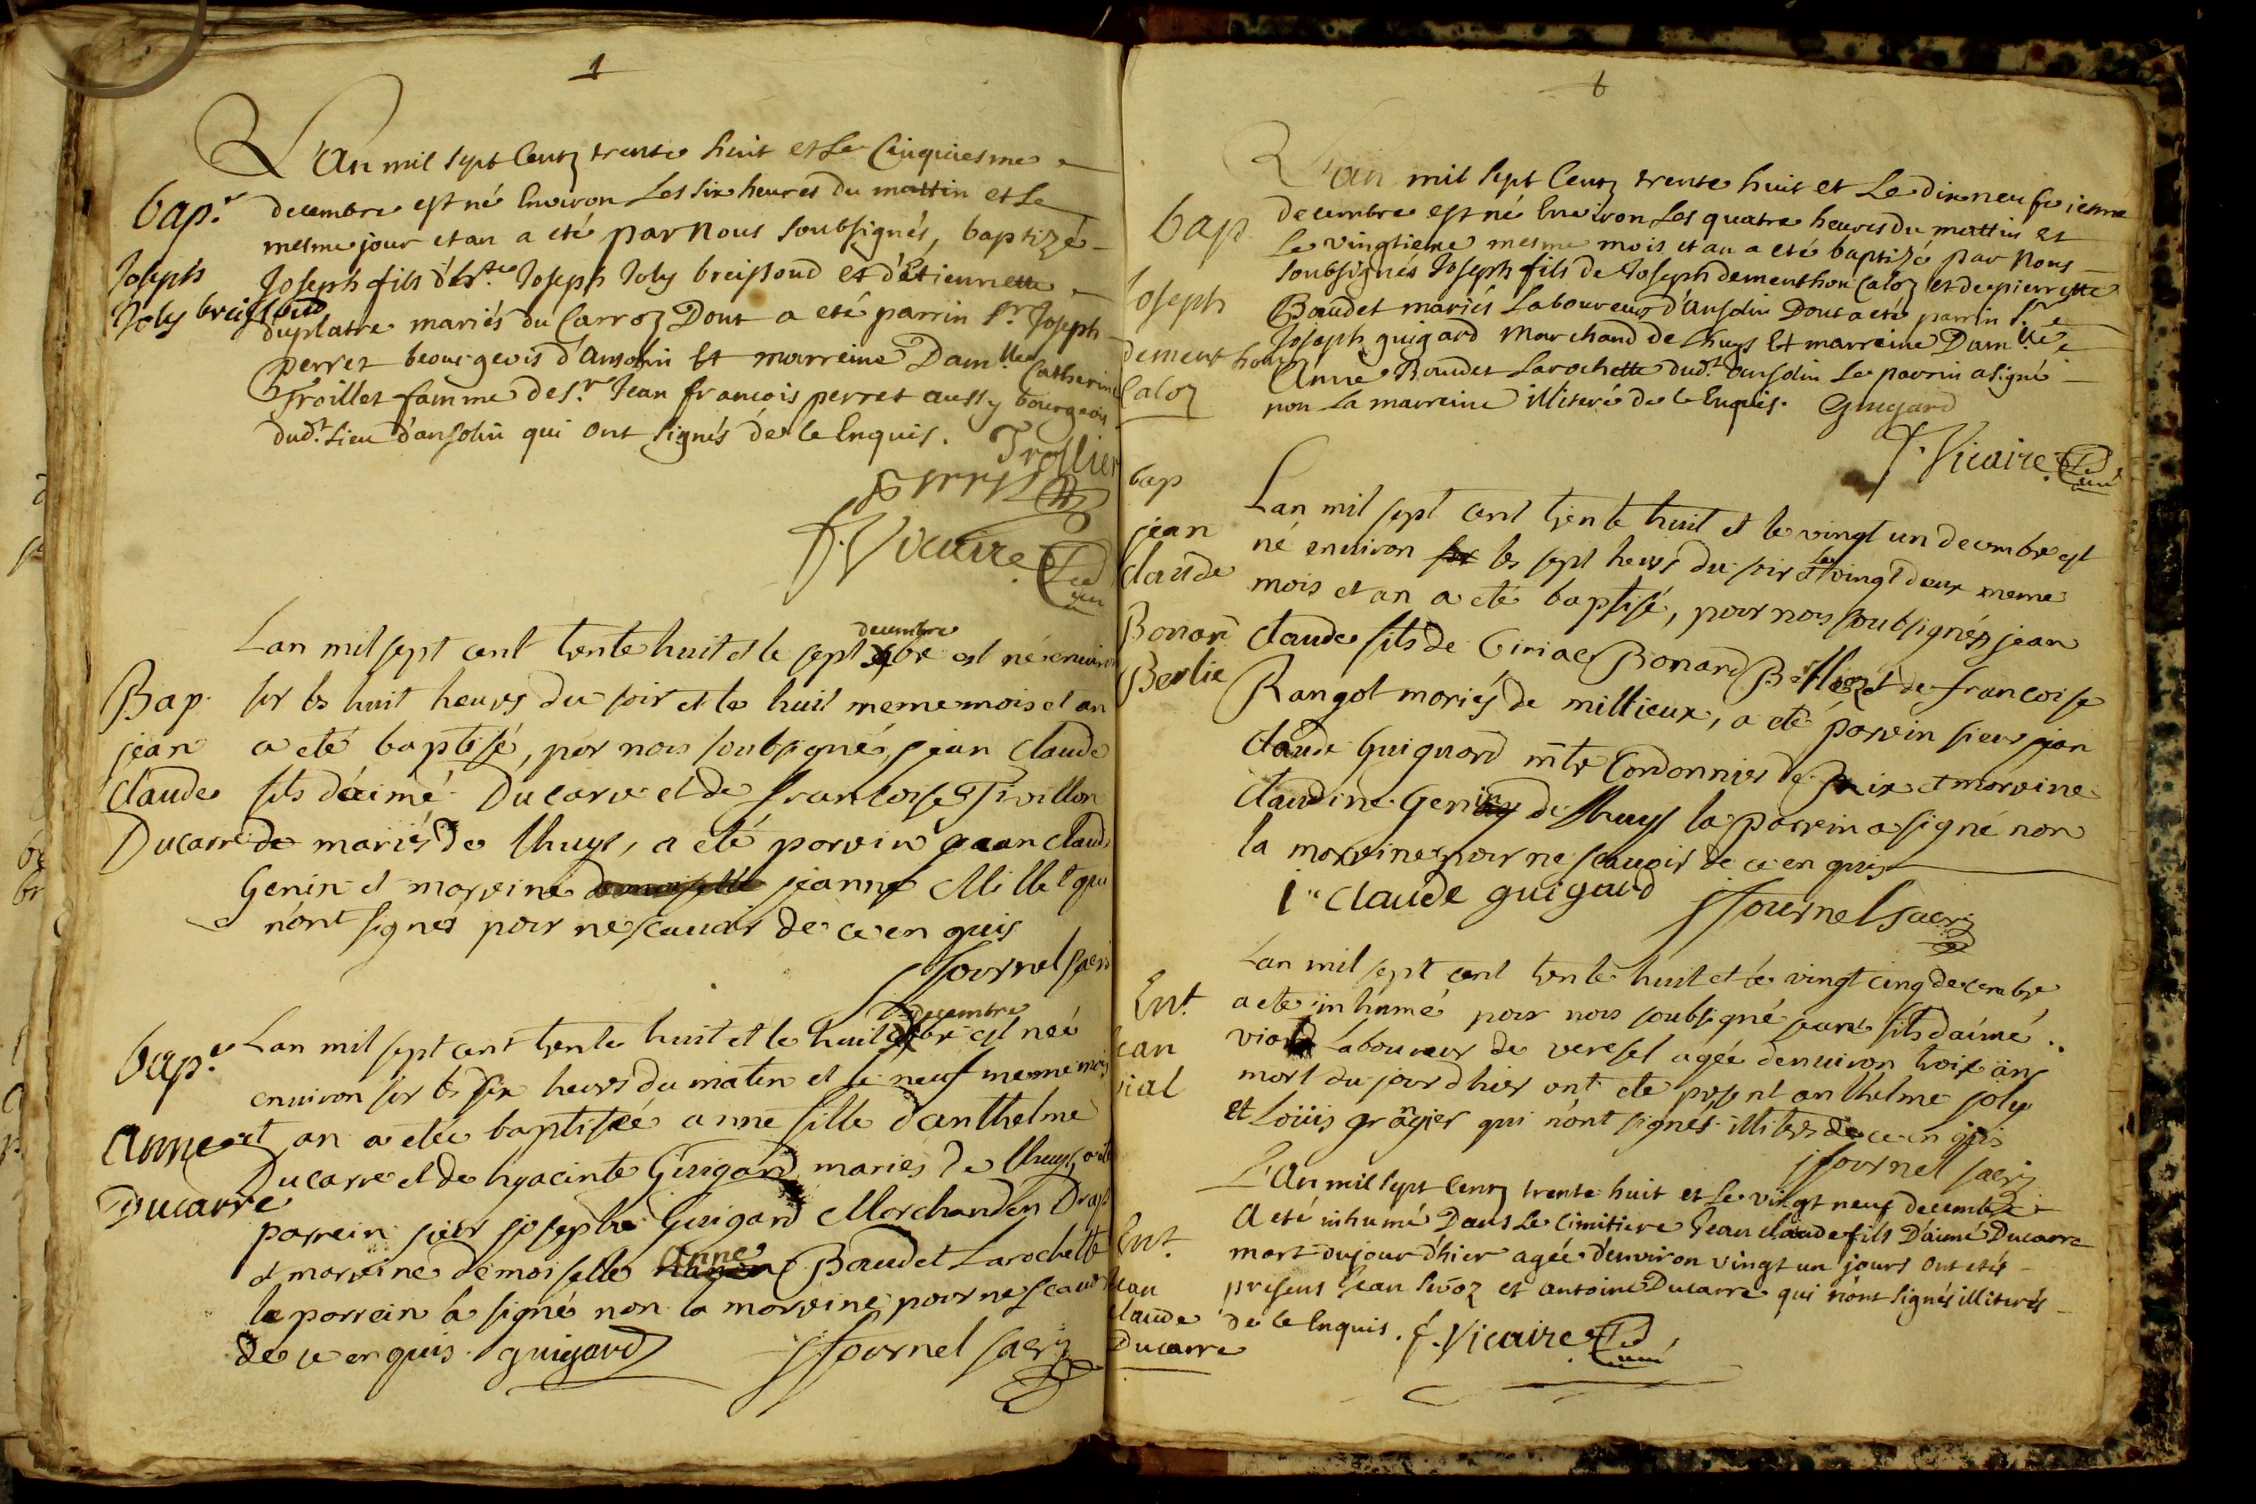 1
L'An mil sept Centz trente huit et le Cinquiesme
bap.e decembre est né Environ Les six heures du mattin et Le
mesme jour et an a eté par Nous soubsignés, baptizé
Joseph Joseph fils d'h.te Joseph Joly breissoud et d'Etiennette
Joly breissoud duplatre mariés du Carroz Dont a eté parrin S.r Joseph
perret beourgeois d'Ansolin Et marreine Dam.lle Catherine
Troillet famme de S.r Jean francois perret aussy bourgeois
dud.t Lieu d'ansolin qui ont signés dé Ce Enquis. Trollier
perret
f. Vicaire Curé
Lan mil sept cent trente huit et le sept decembre est né enuiron
Bap. sur les huit heures du soir et le huit meme mois et an
jean a eté baptisé, par nous soubsigné, jean claude
claude fils d'aimé Ducarre et de francoise Trvillon
Ducarre de mariés de lhuys, a eté parrein jean claude
Genin et marreine jeanne Millet qui
n'ont signés pour ne scauoir de ce en quis
J Journel sacri
Lan mil sept cent trente huit et le huit decembre est neé
bap.e enuiron sur les six heures du matin et le neuf meme mois
Anne et an a eté baptiseé anne fille d'anthelme
Ducarre Ducarre et de hyacinte Guigard mariés de lhuys, a eté
parrein sieur josephe Guigard Marchand en Drap
et marreine demoiselle Anne Baudet Larochette
le parrein a signé non la marreine pour ne scauoir
de ce en quis. guigard J Journel sacri
L'an mil sept Centz trente huit et Le dix neufviesme
bap decembre est né Environ Les quatre heures du mattin et
Le vingtieme mesme mois et an a eté baptizé par Nous
soubsignés Joseph fils de Joseph dementhon Caloz et de pierrette
Joseph Boudet mariés Laboureur d'Ansolin Dont a eté parrin S.r
dementhon Joseph guigard Marchand de Lhuys Et marreine Dam.lle
Caloz Anne Boudet Larochette dud.t Ansolin Le parrin a signé
non La marreine illiteré de Ce Enquis. Guigard
f. Vicaire Curé
bap Lan mil sept cent trente huit et le vingt un decembre est
jean né enuiron les sept heurs du soir et le vingt deux meme
claude mois et an a eté baptisé, par nous soubsignés jean
Bonard claude fils de Ciriac Bonard Berlie et de francoise
Berlie Rangot mariés de millieux, a eté parrein sieur jean
claude Guiguard m.tre Cordonnier de et marreine
claudine Genin de lhuys la parrein a signé non
la marreine pour ne scauoir de ce en quis
j. claude guigard J Journel sacri
Lan mil sept cent trente huit et le vingt cinq decembre
Ent. a eté inhumé par nous soubsigné jean fils d'aimé
jean vial Laboureur de veresel agée denuiron trois ans
vial mort du jour d'hier ont eté present anthelme joly
et Loüis grangier qui n'ont signés illiterés de ce en quis
J Journel sacri
L'An mil sept Centz trente huit et Le vingt neuf decembre
Ent. A eté inhumé Dans Le Cimitiere Jean claude fils D'aimé Ducarre
mort dujour d'hier agée d'environ vingt un jours ont etés
jean presens Jean et Antoine Ducarre qui n'ont signés illiterés
claude dé Ce Enquis. f. Vicaire Curé
Ducarre